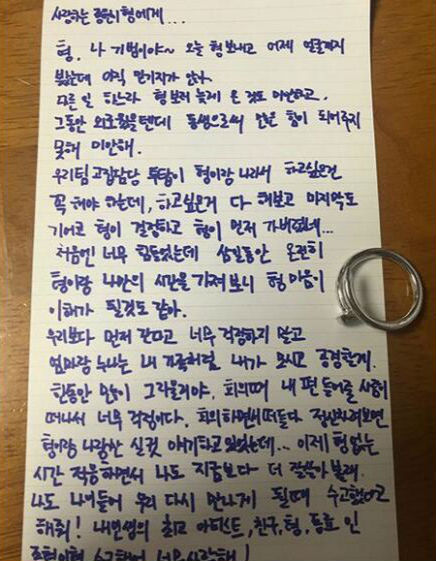 사랑하는 종현이형에게...
형. 나 기범이야~ 오늘 형보내고 어제 얼굴까지
봤는데 아직 믿기지가 않아
다른 일 하느라 형보러 늦게 온 것도 미안하고,
그동안 외로웠을텐데 동생으로써 만은 힘이 되어주지
못해 미안해.
우리팀 고집담당 투탑이 형이랑 나라서 하고싶은건
꼭 해야 하는데, 하고싶은거 다 해보고 마지막도
기어코 형이 결정하고 형이 먼저 가버렸네...
처음엔 너무 힘들었는데 삼일동안 온전히
형이랑 나만의 시간을 가져보니 형 마음이
이해가 될것도 같아.
우리보다 먼저 간다고 너무 걱정하지 말고
엄마랑 누나는 내 가족처럼 내가 모시고 공경할게.
한동안 많이 그리울거야. 회의때 내 편 들어줄 사람이
떠나서 너무 걱정이다. 회의하면서 떠들다 정신차려보면
형이랑 나랑만 실컷 얘기하고 있었는데... 이제 형 없는
시간 적응하면서 나도 지금보다 더 잘살아 볼래.
나도 나이들어 우리 다시 만나게 될때 수고했다고
해줘! 내인생의 최고 아티스트, 친구, 형, 동료 인
종현이형 수고했어 너무 사랑해!